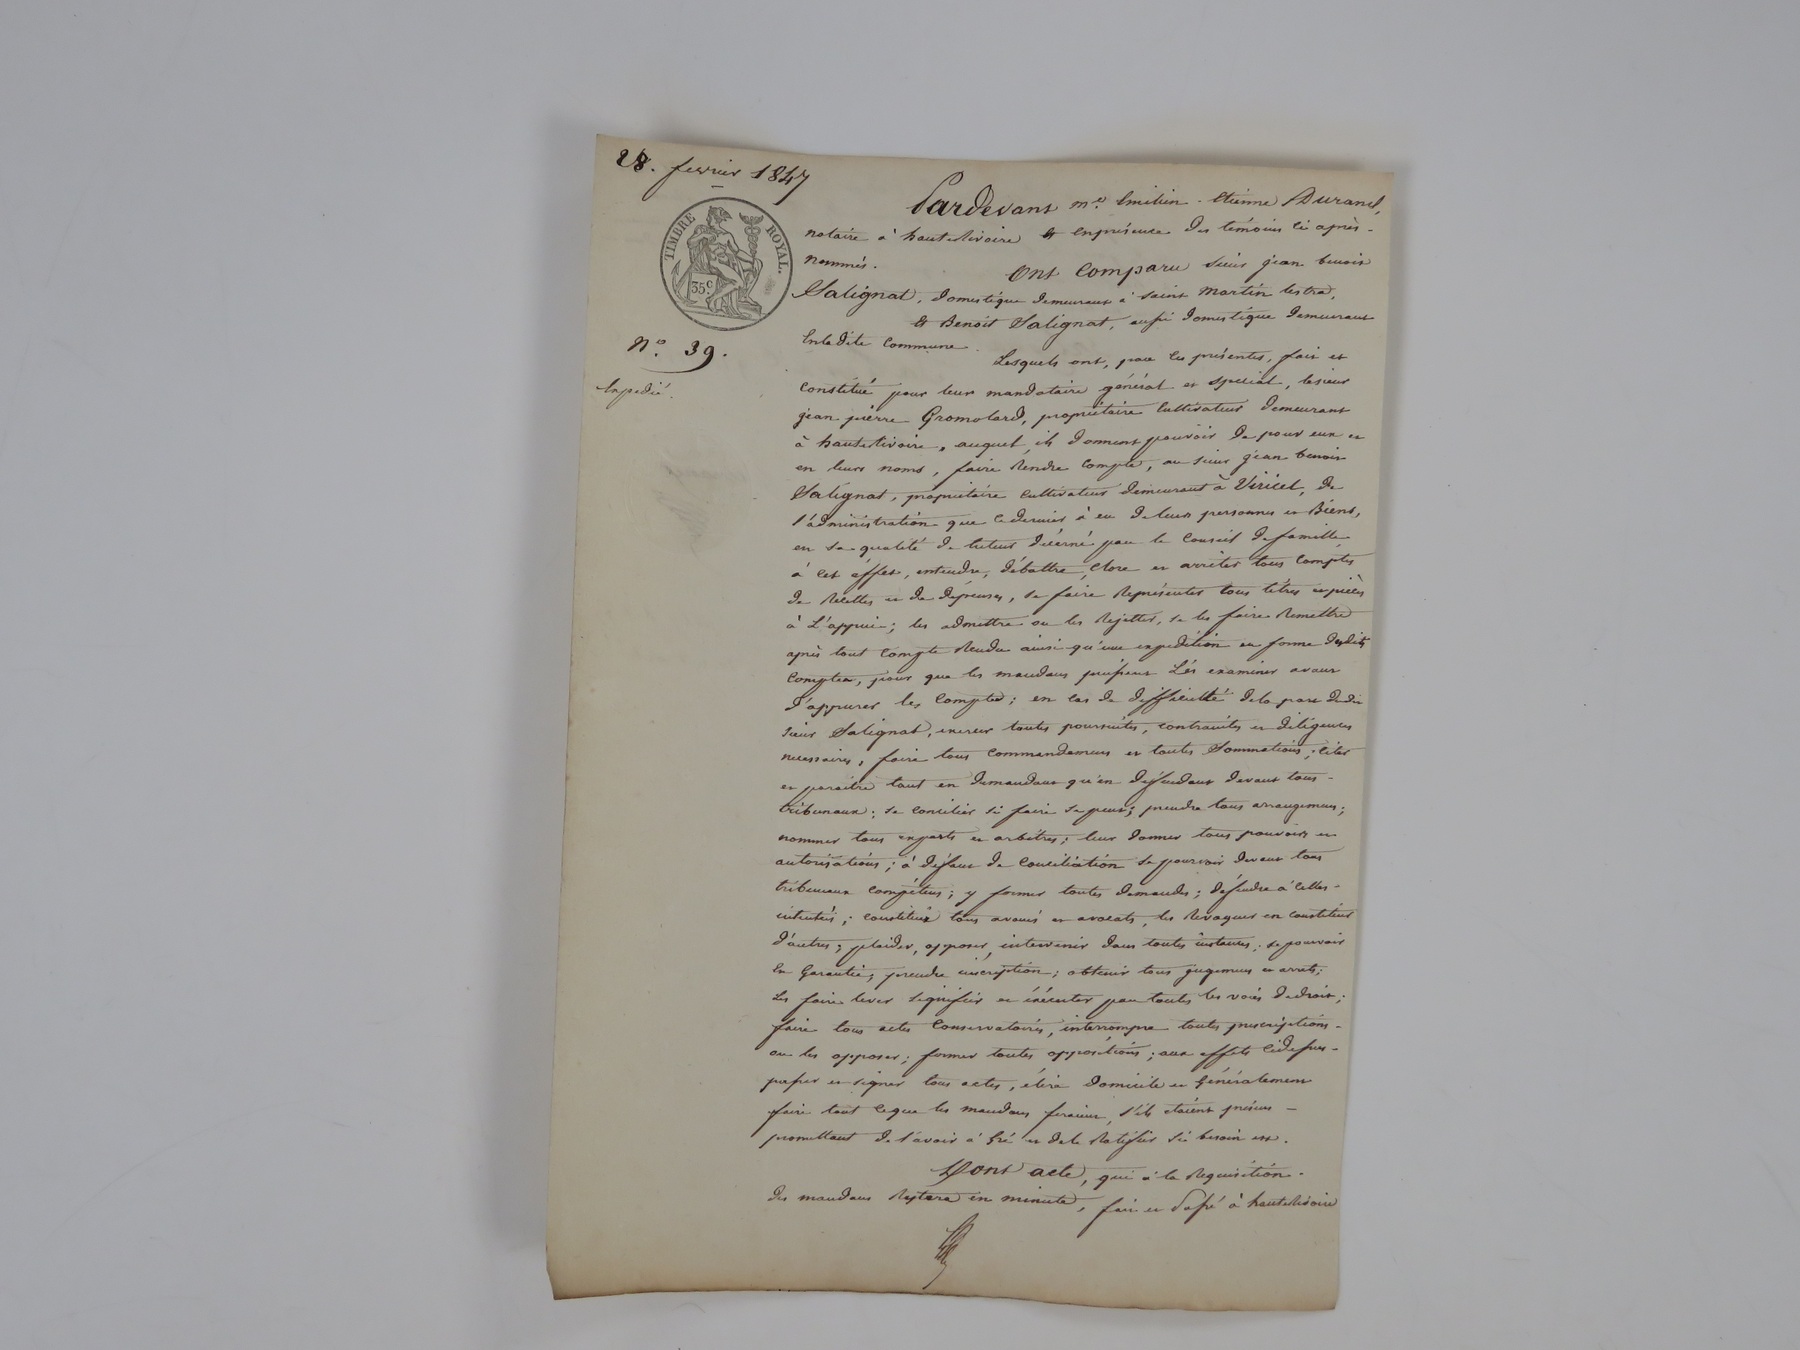 28. fevrier 1847
TIMBRE ROYAL.
35c
N.o 39.
Expédié.
Pardevant me. Emilien - Etienne Durand,
notaire à hauterivoire & enprésence des témoins ci après-
nommés.
Ont comparu sieurs jean benoit
Salignat, domestique demeurant à saint Martin lestra,
& Benoit Salignat, aussi domestique demeurant
enladite commune.
Lesquels ont, par ces présentes, fait et
constitué pour leur mandataire général et spécial, lesieur
jean pierre Gromolard, propriétaire cultivateur demeurant
à hauterivoire, auquel ils donnent pouvoir de pour eux et
en leurs noms, faire rendre compte, au sieur jean benoit
Salignat, propriétaire cultivateur demeurant à Viricel, de
l'administration que cedernier à eu deleurs personnes et Biens,
en sa qualité de tuteur décerné par le conseil defamille,
à cet éffet, entendre, débattre, clore et arrêter tous comptes
de recettes et de dépenses, se faire représenter tous titres et pièces
à l'appui; les admettre ou les rejetter, se les faire remettre
après tout compte rendu ainsi qu'une expédition en forme desdits
comptes, pour que les mandans puissent les examiner avant
d'appurer les comptes; en cas de difficulté dela part dudit
sieur Salignat, exercer toutes poursuites, contraintes et diligences
necessaires, faire tous commandemens et toutes sommations; citer
et paraitre tant en demandant qu'en deffendant devant tous-
tribunaux; se concilier si faire se peut; prendre tous arrangemens;
nommer tous experts et arbitres; leur donner tous pouvoirs et
autorisations; à défaut de conciliation se pourvoir devant tous
tribunaux compétens; y former toutes demandes; défendre à celles-
intentées; constituer tous avoués et avocats, les revoquer en constituer
d'autres; plaider, opposer, intervenir dans toutes instances; se pourvoir
en garantie; prendre inscription; obtenir tous jugemens et arrets;
les faire lever signifier et éxécuter par toutes les voies dedroit;
faire tous actes conservatoires, interrompre toutes prescriptions-
ou les opposer; former toutes oppositions; aux effets cidessus-
passer et signer tous actes, élire domicile et généralement
faire tout ceque les mandans feraient, s'ils étaient présens -
promettant de l'avoir à gré et dele ratifier si besoin est.
Dont acte, qui à la requisition-
des mandans restera en minute, fait et passé à hauterivoire